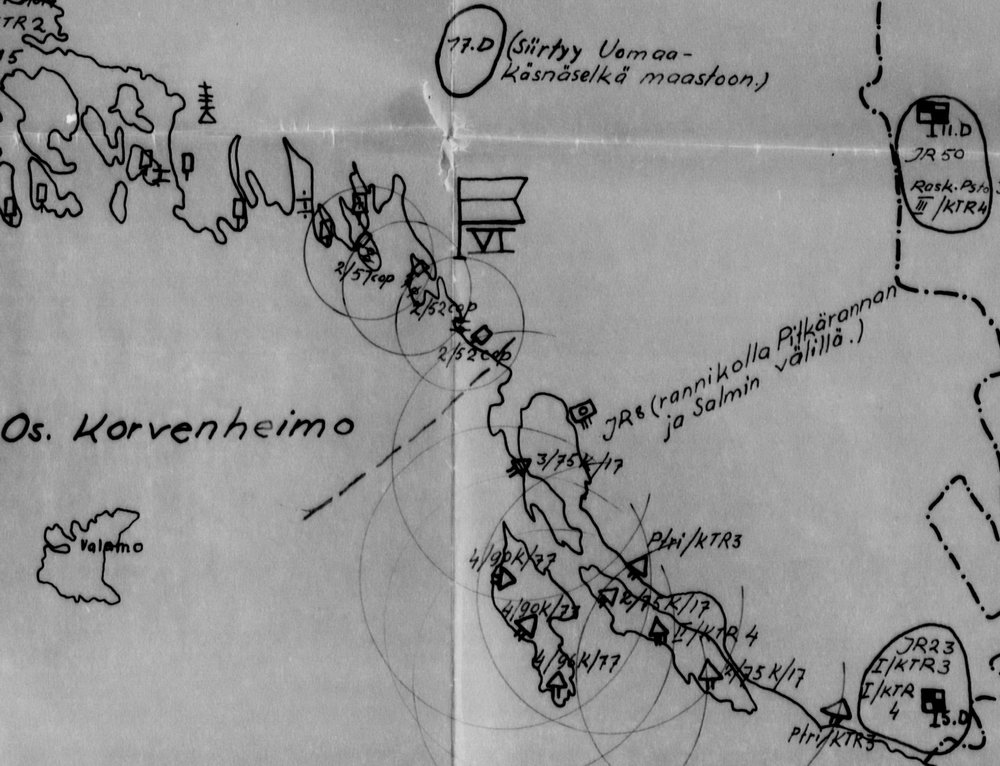 TR2
15
17.D (Siirtyy Uomaa-
Käsnäselkä maastoon.)
11.D
JR 50
Rask. Psto
III/KTR4
VI
2/57cap
2/52cap
2/52cap
JR8 (rannikolla Pitkärannan
ja Salmin välillä.)
Os. Korvenheimo
3/75K/17
Valamo
Ptri/KTR3
4/90K/77
2/75K/17
4/90K/77
II/KTR 4
4/90K/77
2/75K/17
Ptri/KTR3
JR23
I/KTR3
I/KTR
4
5.D